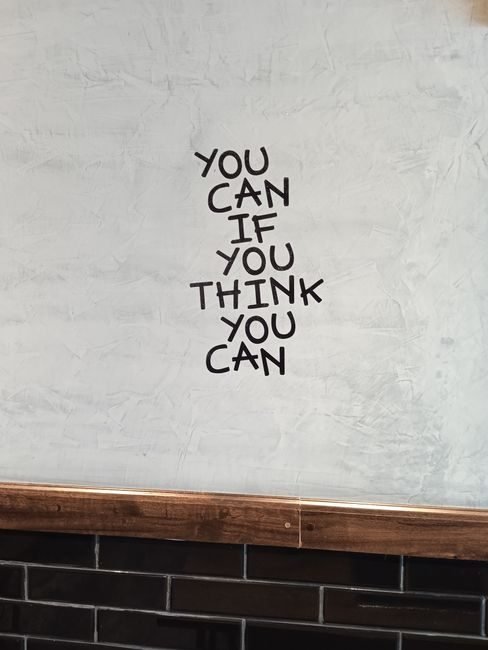 YOU
CAN
IF
YOU
THINK
YOU
CAN